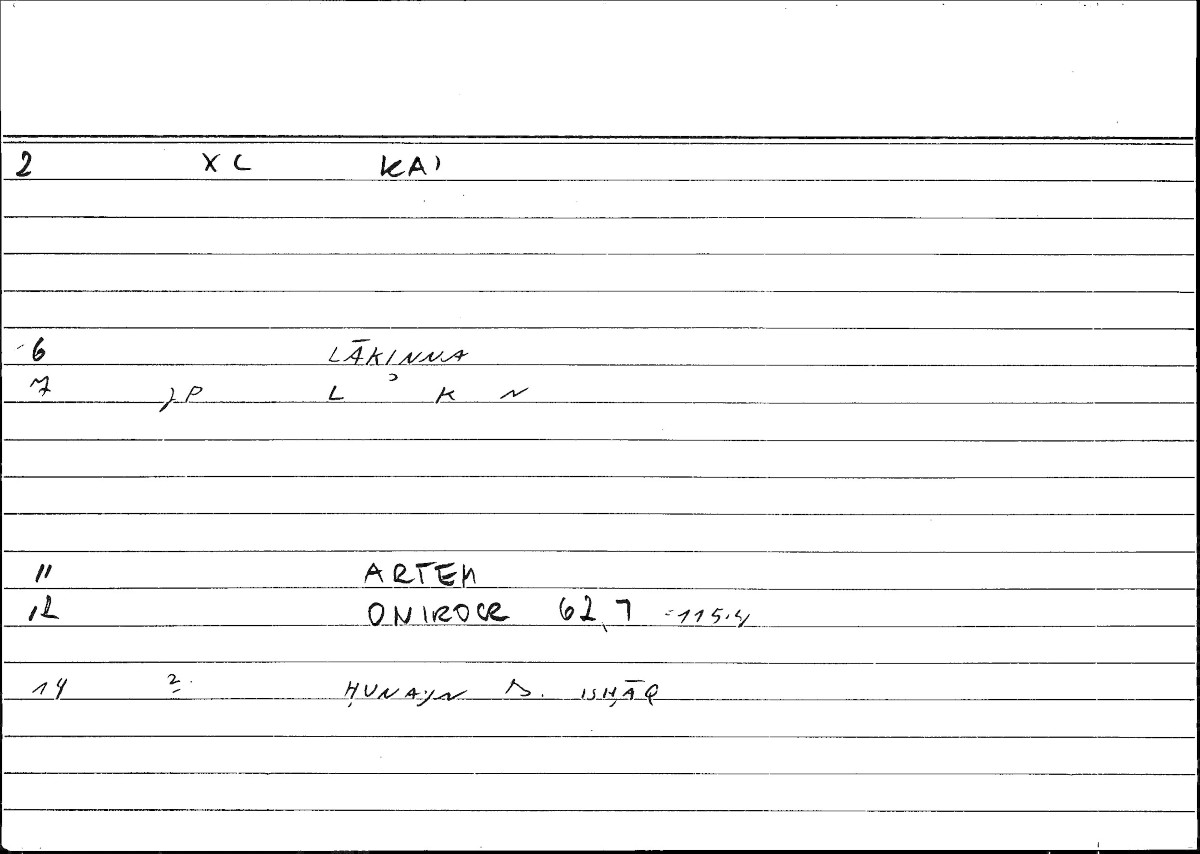 2 XC KAI
6 LĀKINNA
7 JP L ʾ K N
11 ARTEM
12 ONIROCR 62,7 =115.4
14 2. ḤUNAYN B. ISḤĀQ